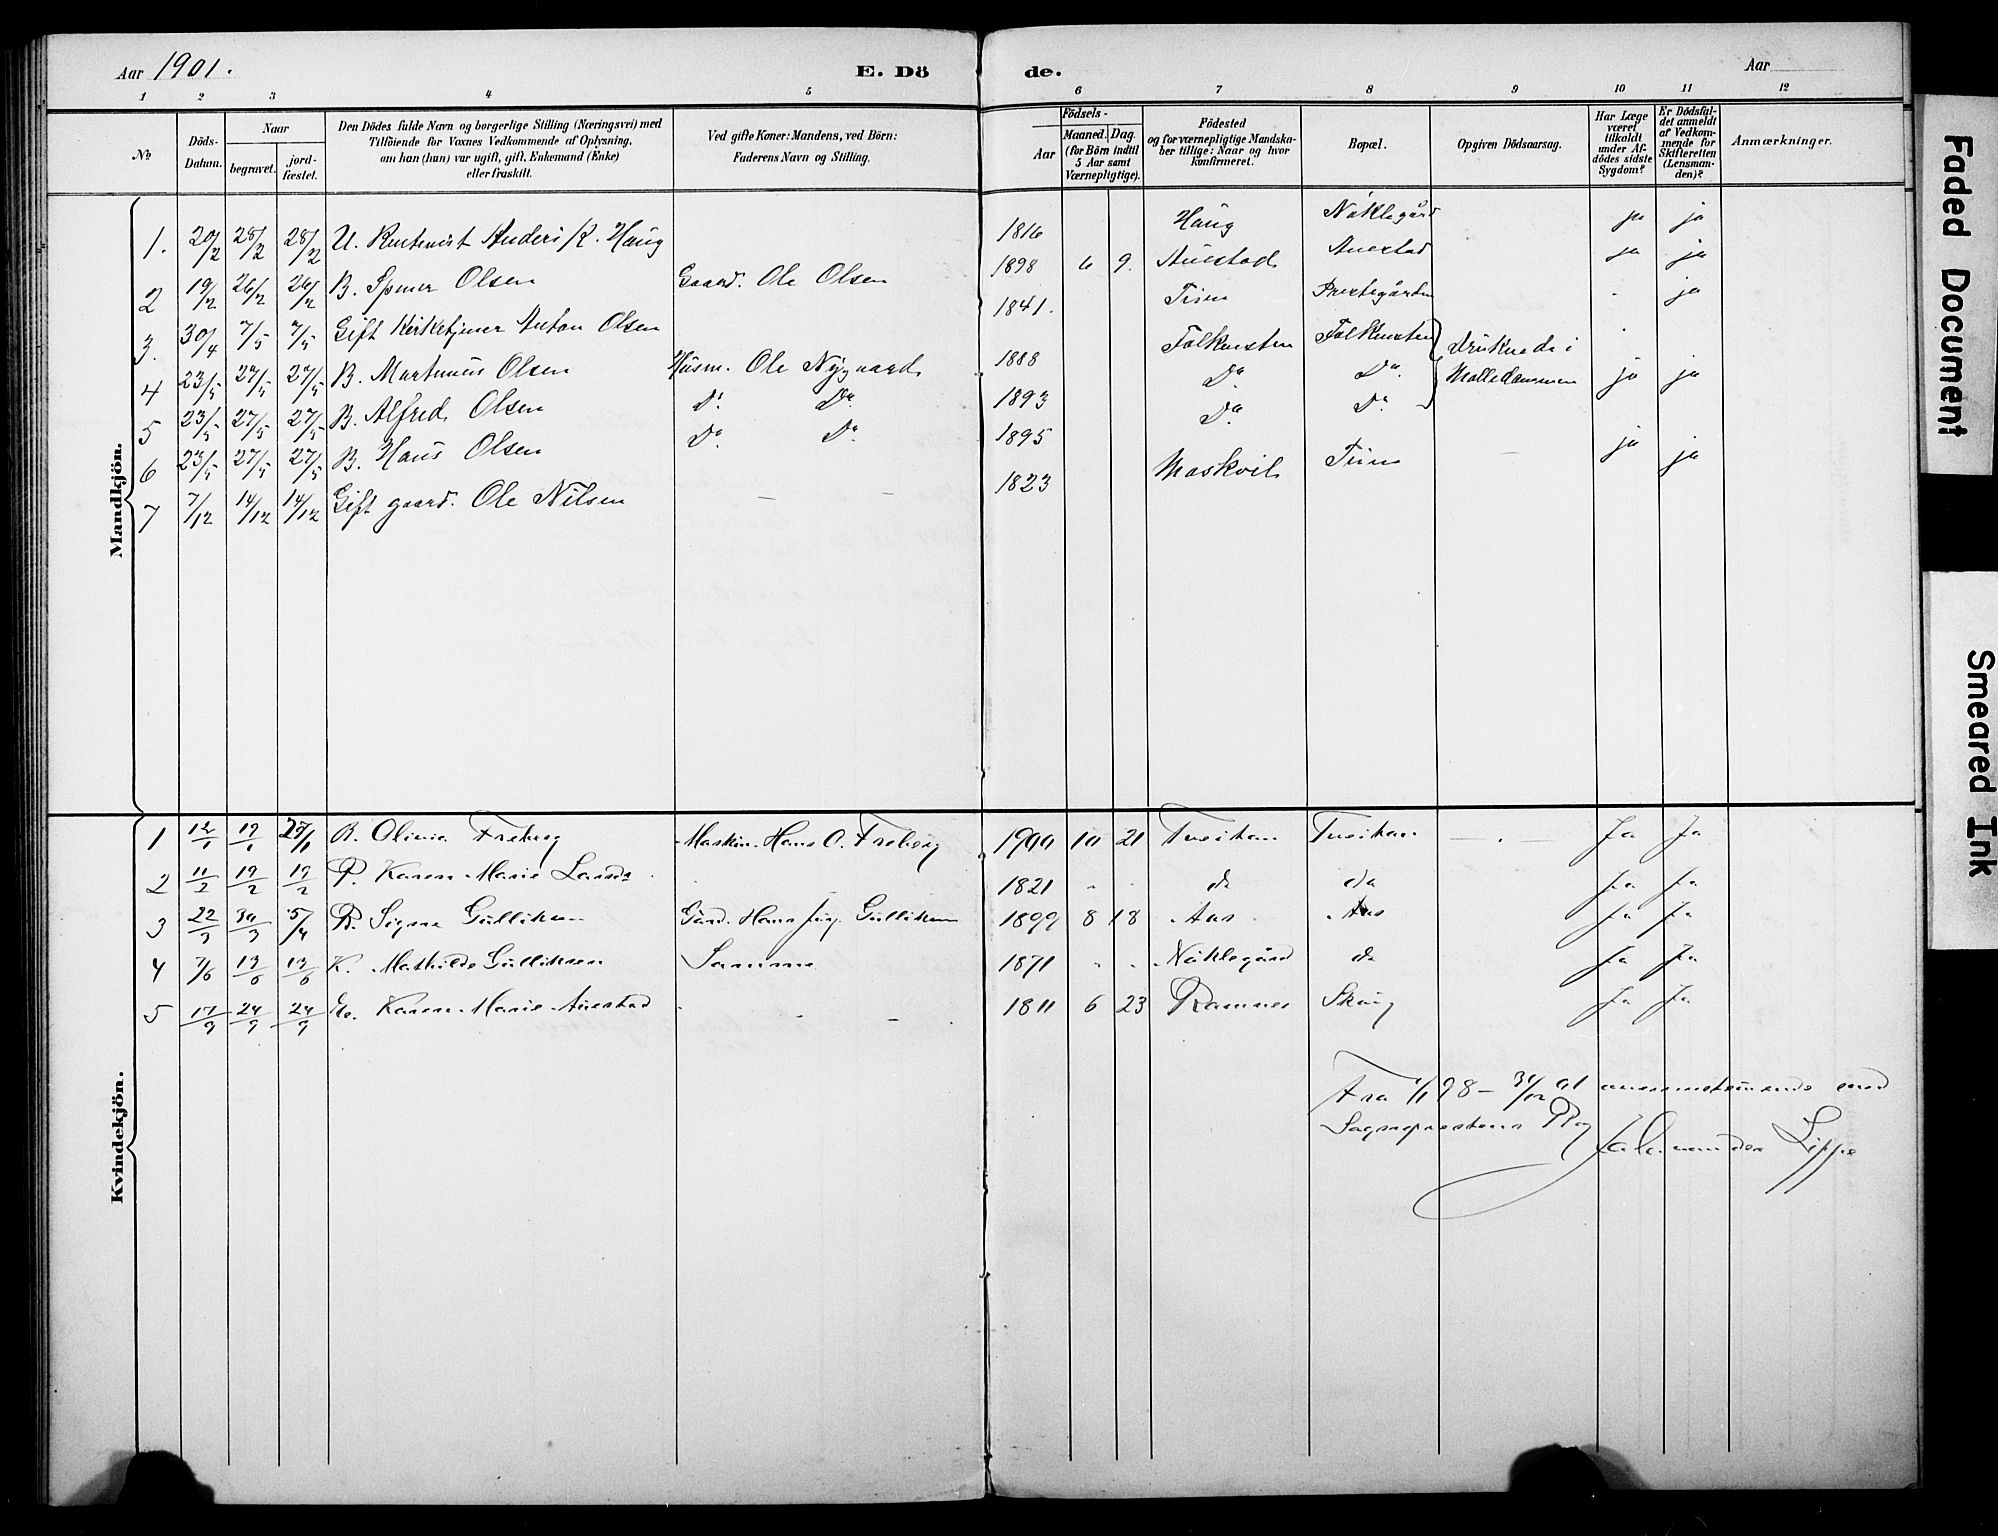 Aar 1901. E. Dö de. Aar
1 2 3 4 5 6 7 8 9 10 11 12
No
Döds-Datum.
Naar
begravet.
jord-fæstet.
Den Dödes fulde Navn og borgerlige Stilling (Næringsvei) med
Tilföiende for Voxnes Vedkommende af Oplysning,
om han (hun) var ugift, gift, Enkemand (Enke)
eller fraskilt.
Ved gifte Koner: Mandens, ved Börn:
Faderens Navn og Stilling.
Födsels-
Aar
Maaned. Dag.
(for Börn indtil
5 Aar samt
Værnepligtige).
Födested
og for værnepligtige Mandska-
ber tillige: Naar og hvor
konfirmeret.
Bopæl.
Opgiven Dödsaarsag.
Har Læge
været
tilkaldt
under Af-
dödes sidste
Sygdom?
Er Dödsfal-
det anmeldt
af Vedkom-
mende for
Skifteretten
(Lensman-
den)?
Anmærkninger.
Mandkjön.
1. 20/2 28/2 28/2 U. Rentenist Anders K. Haug 1816 Haug Nöklegård ja ja
2 19/2 26/2 26/2 B. Olsen Gaard. Ole Olsen 1898 6 9. Auestad Auestad ja ja
3. 30/4 7/5 7/5 Gift Kirketjener Anton Olsen 1841. Prestegården ja
4 23/5 27/5 27/5 B. Martinius Olsen Husm. Ole Nygaard 1888 Falkensten Falkensten Druknede i
5 23/5 27/5 27/5 B. Alfred Olsen Do Do 1893 Do Do Mølledammen ja ja
6 23/5 27/5 27/5 B. Hans Olsen Do Do 1895 Do Do
7 7/12 14/12 14/12 Gift gaard. Ole Nilsen - - 1823 - ja ja
Kvindekjön.
1 12/1 19/1 B. Olivia Freberg Maskin. Hans O. Freberg 1900 10 21 Tveitan Tveitan - . - Ja Ja
2 11/2 19/2 19/2 Karen Marie 1821 - - do do Ja Ja
3 22/3 30/3 5/4 B. Signe Gulliksen Gård. Hans Jørg. Gulliksen 1899 8 18 Aas Aas Ja Ja
4 7/6 13/6 13/6 K. Mathilde Gulliksen Samme 1871 - - Nöklegård do Ja Ja
5 17/9 24/9 24/9 Karen Marie Auestad - - 1811 6 23 Ramnes Skaug Ja Ja
Fra 1/1 98 - 31/12 01 overensstemmende med
Sognepræstens Bog
Lippe
Faded Document
Smeared Ink